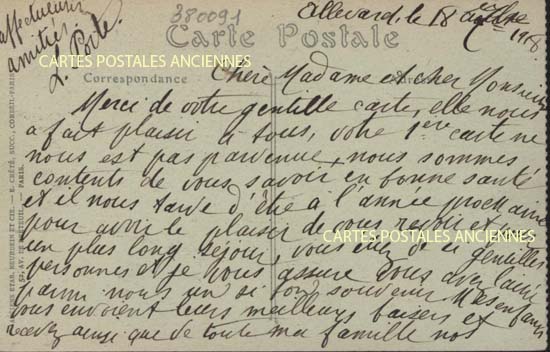 380091
Allevard, le 18 1908
Carte Postale
Correspondance
Chère Madame et cher Monsieur
Merci de votre gentille carte, elle nous
a fait plaisir à tous, votre 1ère carte ne
nous est pas parvenue, nous sommes
contents de vous savoir en bonne santé
et il nous tarde d'être à l'année prochaine
pour avoir le plaisir de vous revoir et
un plus long séjour, vous êtes de si gentilles
personnes et je vous assure vous avez laissé
parmi nous un si bon souvenir Mes enfants
vous envoient leurs meilleurs baisers et
recevez ainsi que de toute ma famille nos
affectueuses
amitiés.
L. Porte
CARTES POSTALES ANCIENNES
CARTES POSTALES ANCIENNES